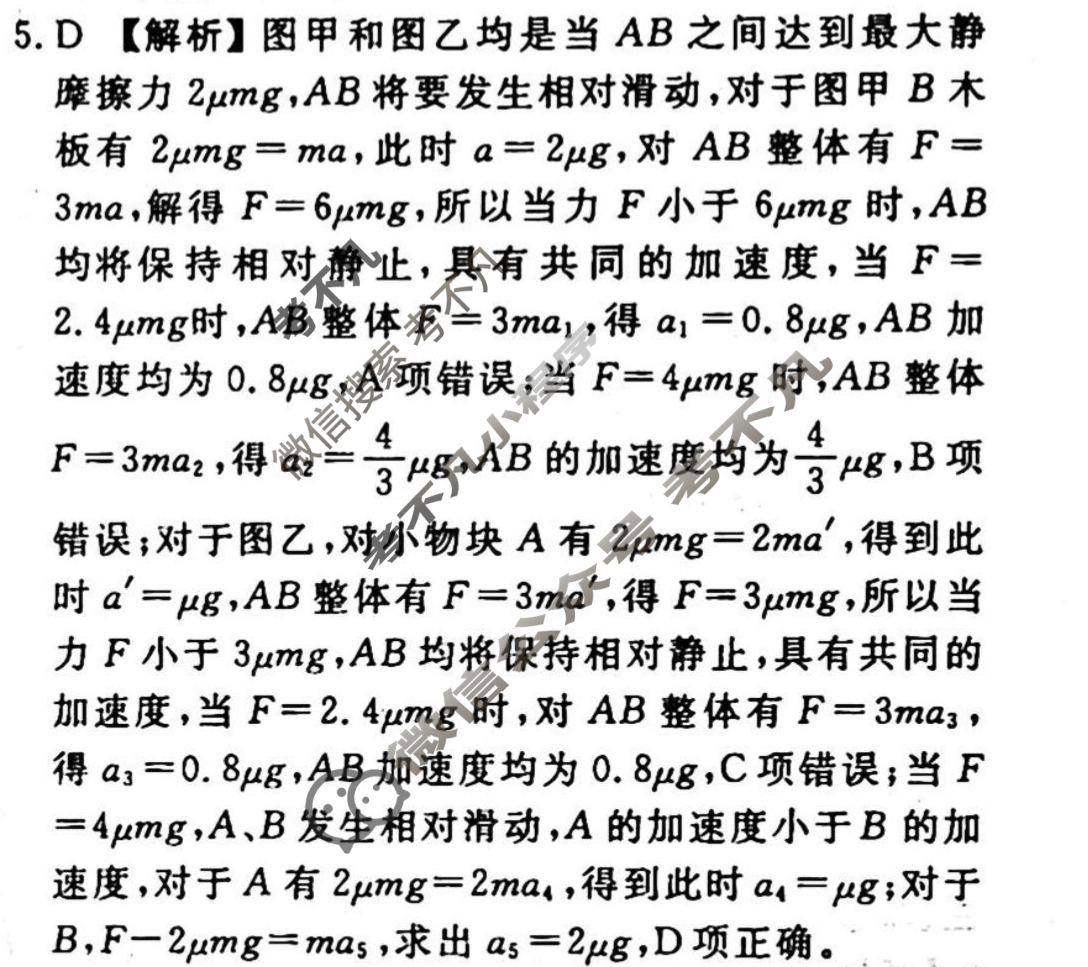 5. D 【解析】图甲和图乙均是当 AB 之间达到最大静
摩擦力 2μmg,AB 将要发生相对滑动,对于图甲 B 木
板有 2μmg=ma,此时 a=2μg,对 AB 整体有 F=
3ma,解得 F=6μmg,所以当力 F 小于 6μmg 时,AB
均将保持相对静止,具有共同的加速度,当 F=
2.4μmg时,AB 整体 F=3ma₁,得 a₁=0.8μg,AB 加
速度均为 0.8μg,A 项错误;当 F=4μmg 时,AB 整体
F=3ma₂,得 a₂=4/3 μg,AB 的加速度均为 4/3 μg,B 项
错误;对于图乙,对小物块 A 有 2μmg=2ma′,得到此
时 a′=μg,AB 整体有 F=3ma′,得 F=3μmg,所以当
力 F 小于 3μmg,AB 均将保持相对静止,具有共同的
加速度,当 F=2.4μmg 时,对 AB 整体有 F=3ma₃,
得 a₃=0.8μg,AB 加速度均为 0.8μg,C 项错误;当 F
=4μmg,A、B 发生相对滑动,A 的加速度小于 B 的加
速度,对于 A 有 2μmg=2ma₄,得到此时 a₄=μg;对于
B,F-2μmg=ma₅,求出 a₅=2μg,D 项正确。
考不凡
微信搜索 考不凡
考不凡小程序
微信公众号 考不凡